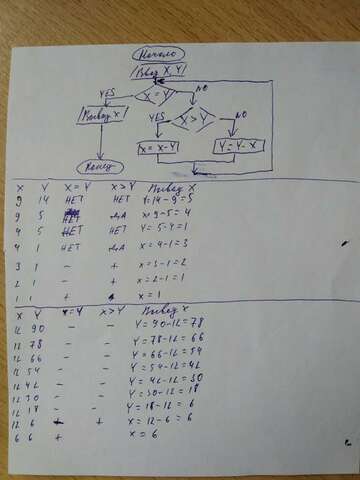 Начало
Ввод X, Y
YES X = Y NO
Вывод X YES X > Y NO
X = X-Y Y = Y-X
Конец
X Y X = Y X > Y Вывод X
9 14 НЕТ НЕТ Y=14-9=5
9 5 НЕТ ДА X=9-5=4
4 5 НЕТ НЕТ Y=5-4=1
4 1 НЕТ ДА X=4-1=3
3 1 - + X=3-1=2
2 1 - + X=2-1=1
1 1 + X=1
X Y X=Y X>Y Вывод X
12 90 - - Y=90-12=78
12 78 - - Y=78-12=66
12 66 - - Y=66-12=54
12 54 - - Y=54-12=42
12 42 - - Y=42-12=30
12 30 - - Y=30-12=18
12 18 - - Y=18-12=6
12 6 + X=12-6=6
6 6 + X=6